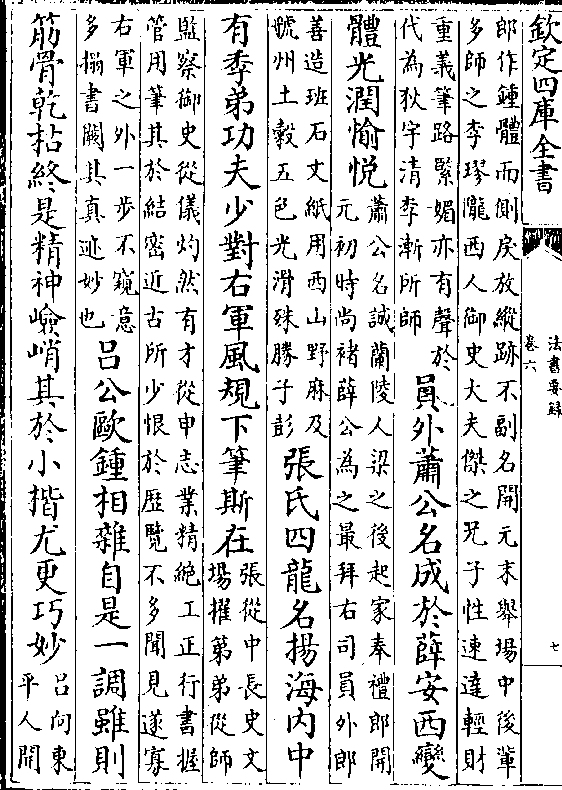 欽定四庫全書
法書要録
卷六
七
郎作鍾體而側戾放縱跡不副名開元末舉場中後輩
多師之李璆隴西人御史大夫傑之兄子性速達輕財
重義筆路緊媚亦有聲於
代為狄宇清季漸所師
員外蕭公名成於薛安西變
體光潤愉悅
蕭公名誠蘭陵人梁之後起家奉禮郎開
元初時尚褚薛公為之最拜右司員外郎
善造班石文紙用西山野麻及
虢州土穀五色光滑殊勝子彭
張氏四龍名揚海内中
有季弟功夫少對右軍風規下筆斯在
張從中長史文
場擢第弟從師
監察御史從儀灼然有才從申志業精絶工正行書握
管用筆其於結密近古所少恨於歴覽不多聞見遂寡
右軍之外一步不窺意
多搨書闕其真迹妙也
呂公歐鍾相雜自是一調雖則
筋骨乾枯終是精神嶮峭其於小楷尤更巧妙
呂向東
平人開